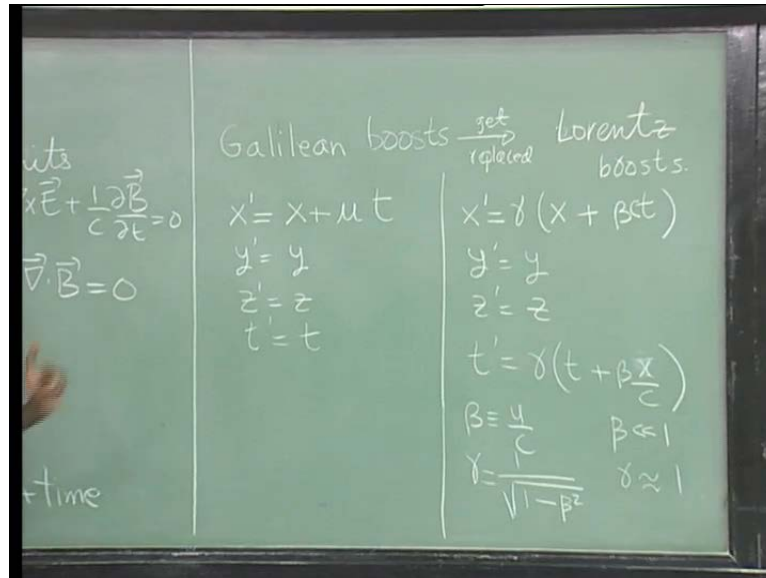 its
x E⃗ + 1/c ∂B⃗/∂t = 0
∇⃗·B⃗ = 0
+ time
Galilean boosts get replaced → Lorentz
boosts.
x' = x + u t
y' = y
z' = z
t' = t
x' = γ (x + βct)
y' = y
z' = z
t' = γ(t + β x/c)
β ≡ u/c β ≪ 1
γ = 1/√(1-β²) γ ≈ 1